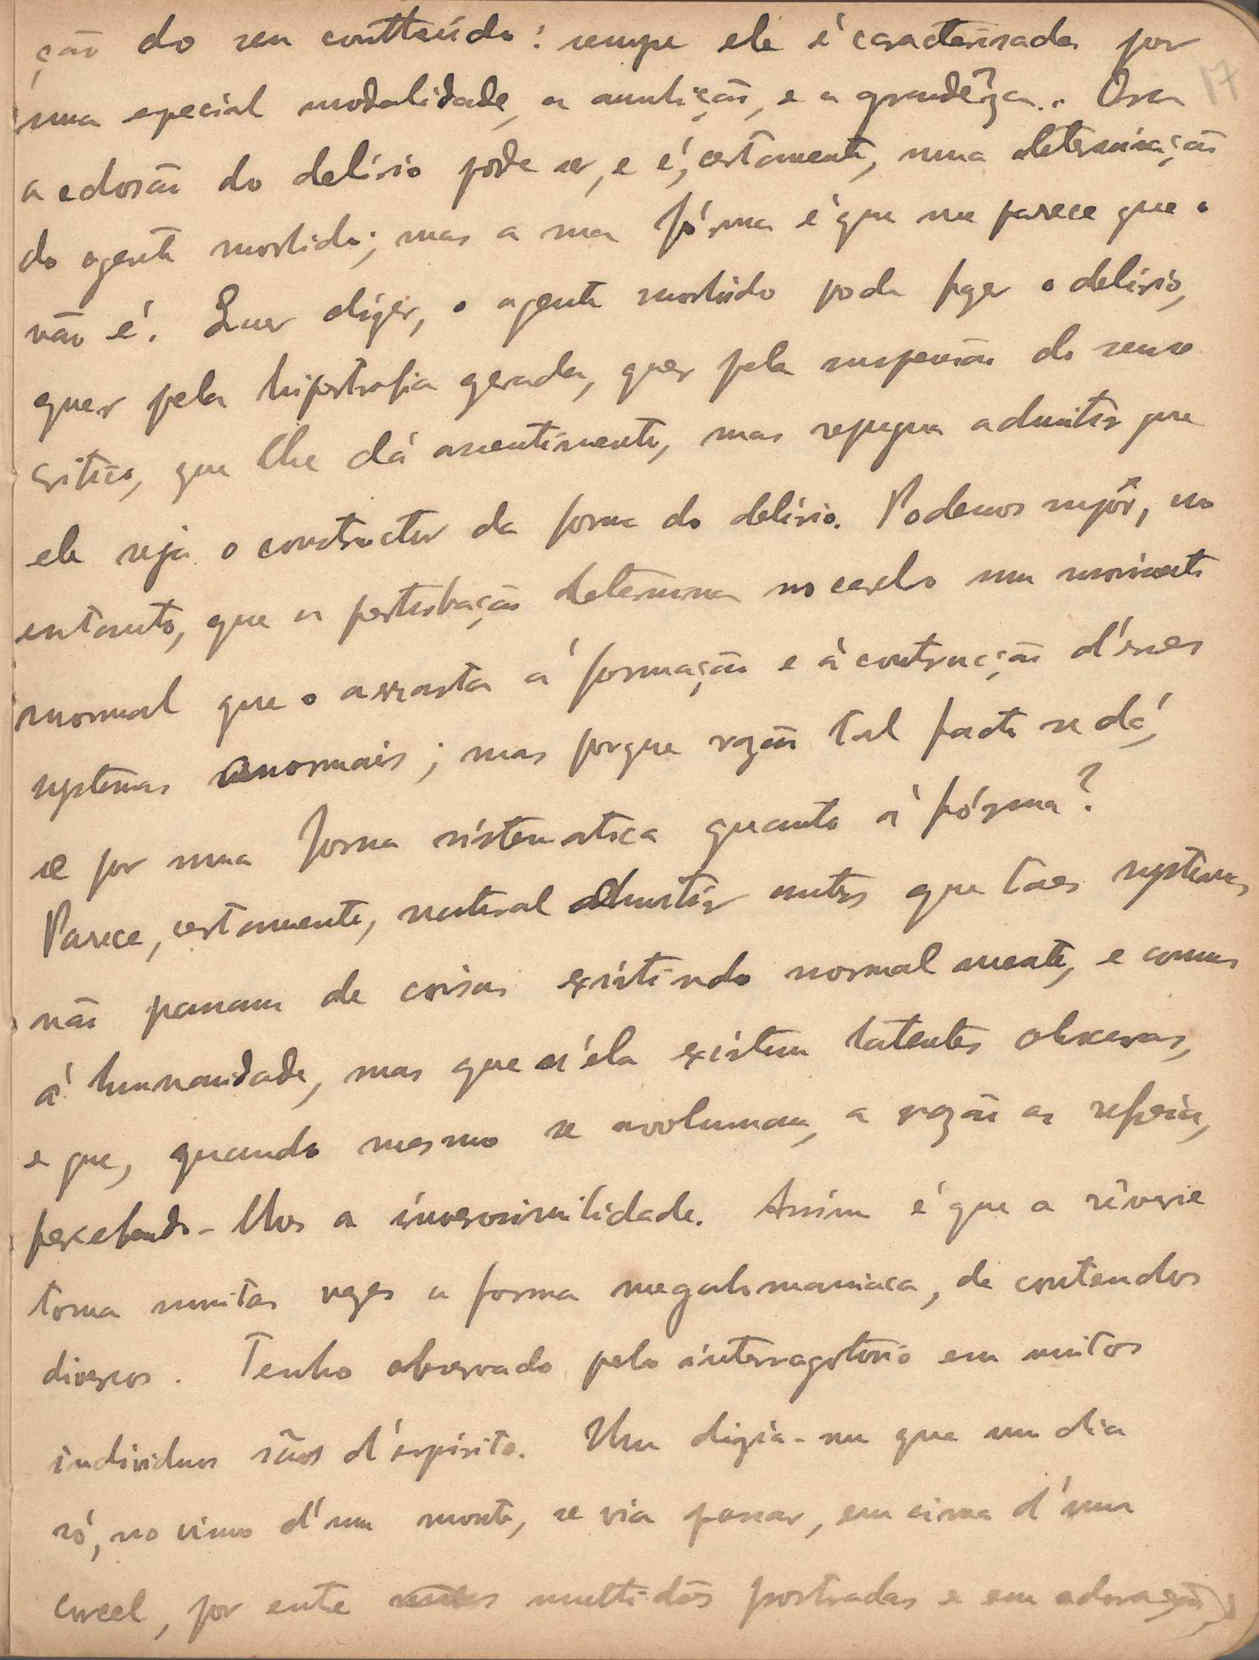 ção do seu conttεúdo: sempre ele é caracterisada por
17
uma especial modalidade, a ambição, e a grandêza.. Ora
a eclosão do delírio póde ser, e é, certamente, uma determinação
do agente morbido; mas a sua fórma é que me parece que o
não é. Quer dizer, o agente morbido pode fazer o delírio,
quer pela hipertrofia gerada, quer pela suspensão do senso
critico, que lhe dá assentimento, mas repugna admitir que
ele seja o constructor da forma do delirio. Podemos supôr, no
entanto, que a perturbação determina no cerebro um movimento
anormal que o arrasta á formação e à contrucção d'esses
systemas anormais; mas porque razão tal facto se dá,
se por uma forma sistematica quanto á fórma?
Parece, certamente, natural admitir antes que taes systemas
não passam de coisas existindo normalmente, e comuns
á humanidade, mas que n'ela existem latentes obscuras,
e que, quando mesmo se avolumam, a razão as refreia,
percebendo-lhes a inverosimilidade. Assim é que a rêverie
toma muitas vezes a forma megalomaniaca, de conteudos
diversos. Tenho observado pelo interrogatorio em muitos
individuos sãos d'espirito. Um dizia-me que um dia
só, no cimo d'um monte, se via passar, em cima d'um
corcel, por entre multidões prostradas e em adoração,